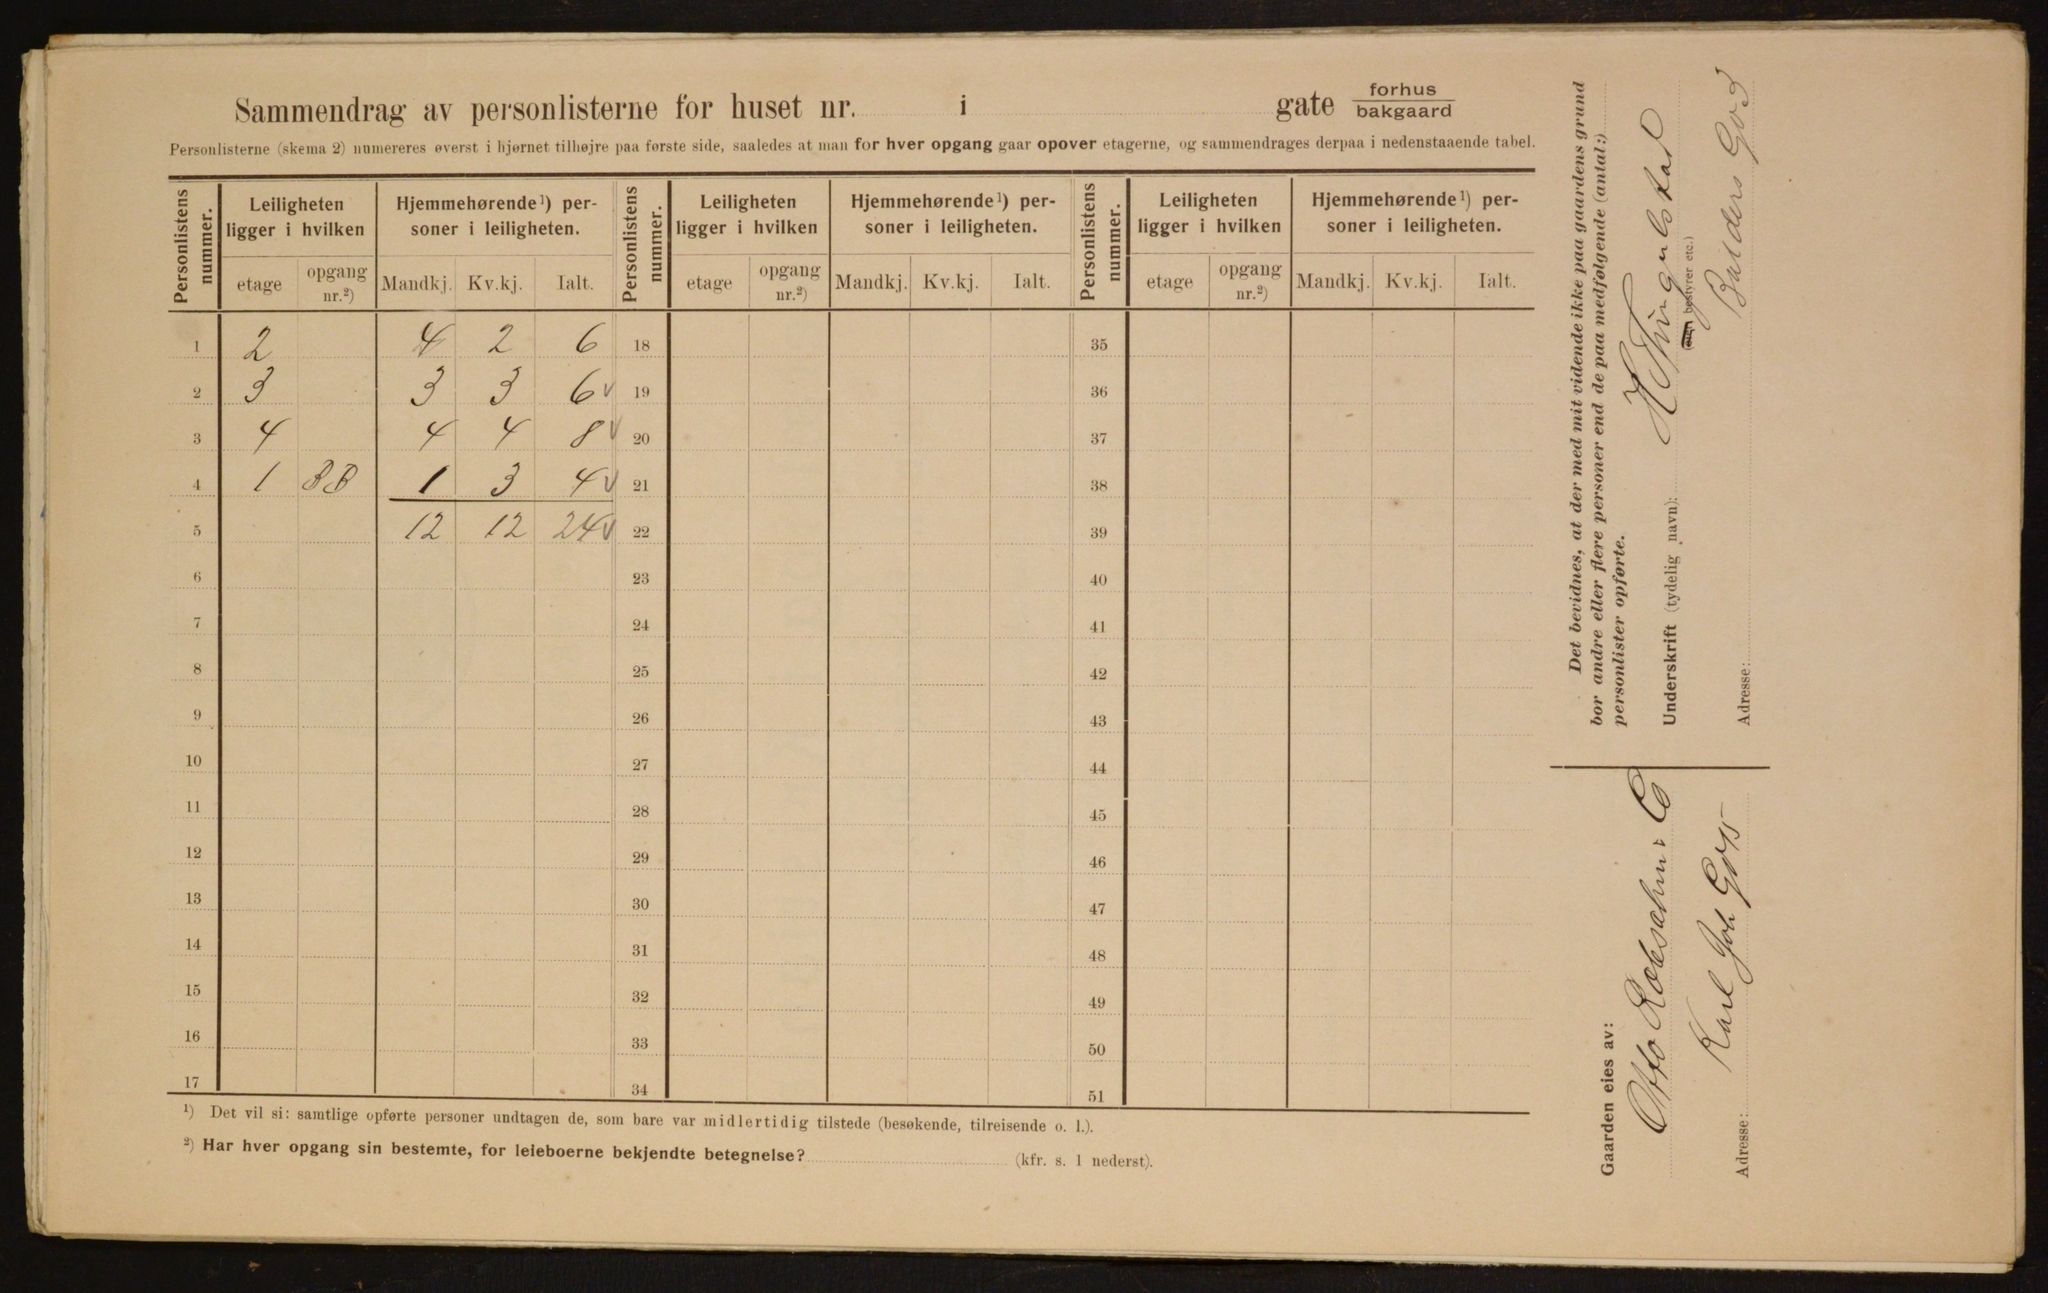 Sammendrag av personlisterne for huset nr. i gate forhus bakgaard
Personlisterne (skema 2) numereres øverst i hjørnet tilhøjre paa første side, saaledes at man for hver opgang gaar opover etagerne, og sammendrages derpaa i nedenstaaende tabel.
Personlistens nummer. Leiligheten ligger i hvilken Hjemmehørende¹) personer i leiligheten. Personlistens nummer. Leiligheten ligger i hvilken Hjemmehørende¹) personer i leiligheten. Personlistens nummer. Leiligheten ligger i hvilken Hjemmehørende¹) personer i leiligheten.
etage opgang nr.²) Mandkj. Kv.kj. Ialt. etage opgang nr.²) Mandkj. Kv.kj. Ialt. etage opgang nr.²) Mandkj. Kv.kj. Ialt.
1 2 4 2 6 18 35
2 3 3 3 6 19 36
3 4 4 4 8 20 37
4 1 BB 1 3 4 21 38
5 12 12 24 22 39
6 23 40
7 24 41
8 25 42
9 26 43
10 27 44
11 28 45
12 29 46
13 30 47
14 31 48
15 32 49
16 33 50
17 34 51
¹) Det vil si: samtlige opførte personer undtagen de, som bare var midlertidig tilstede (besøkende, tilreisende o. l.).
²) Har hver opgang sin bestemte, for leieboerne bekjendte betegnelse? (kfr. s. 1 nederst).
Det bevidnes, at der med mit vidende ikke paa gaardens grund
bor andre eller flere personer end de paa medfølgende (antal:)
personlister opførte.
Underskrift (tydelig navn): H Thingulstad
bestyrer etc.)
Adresse: Balders Gd 3
Gaarden eies av:
Otto Robsahm & Co
Adresse: Karl Joh Gd